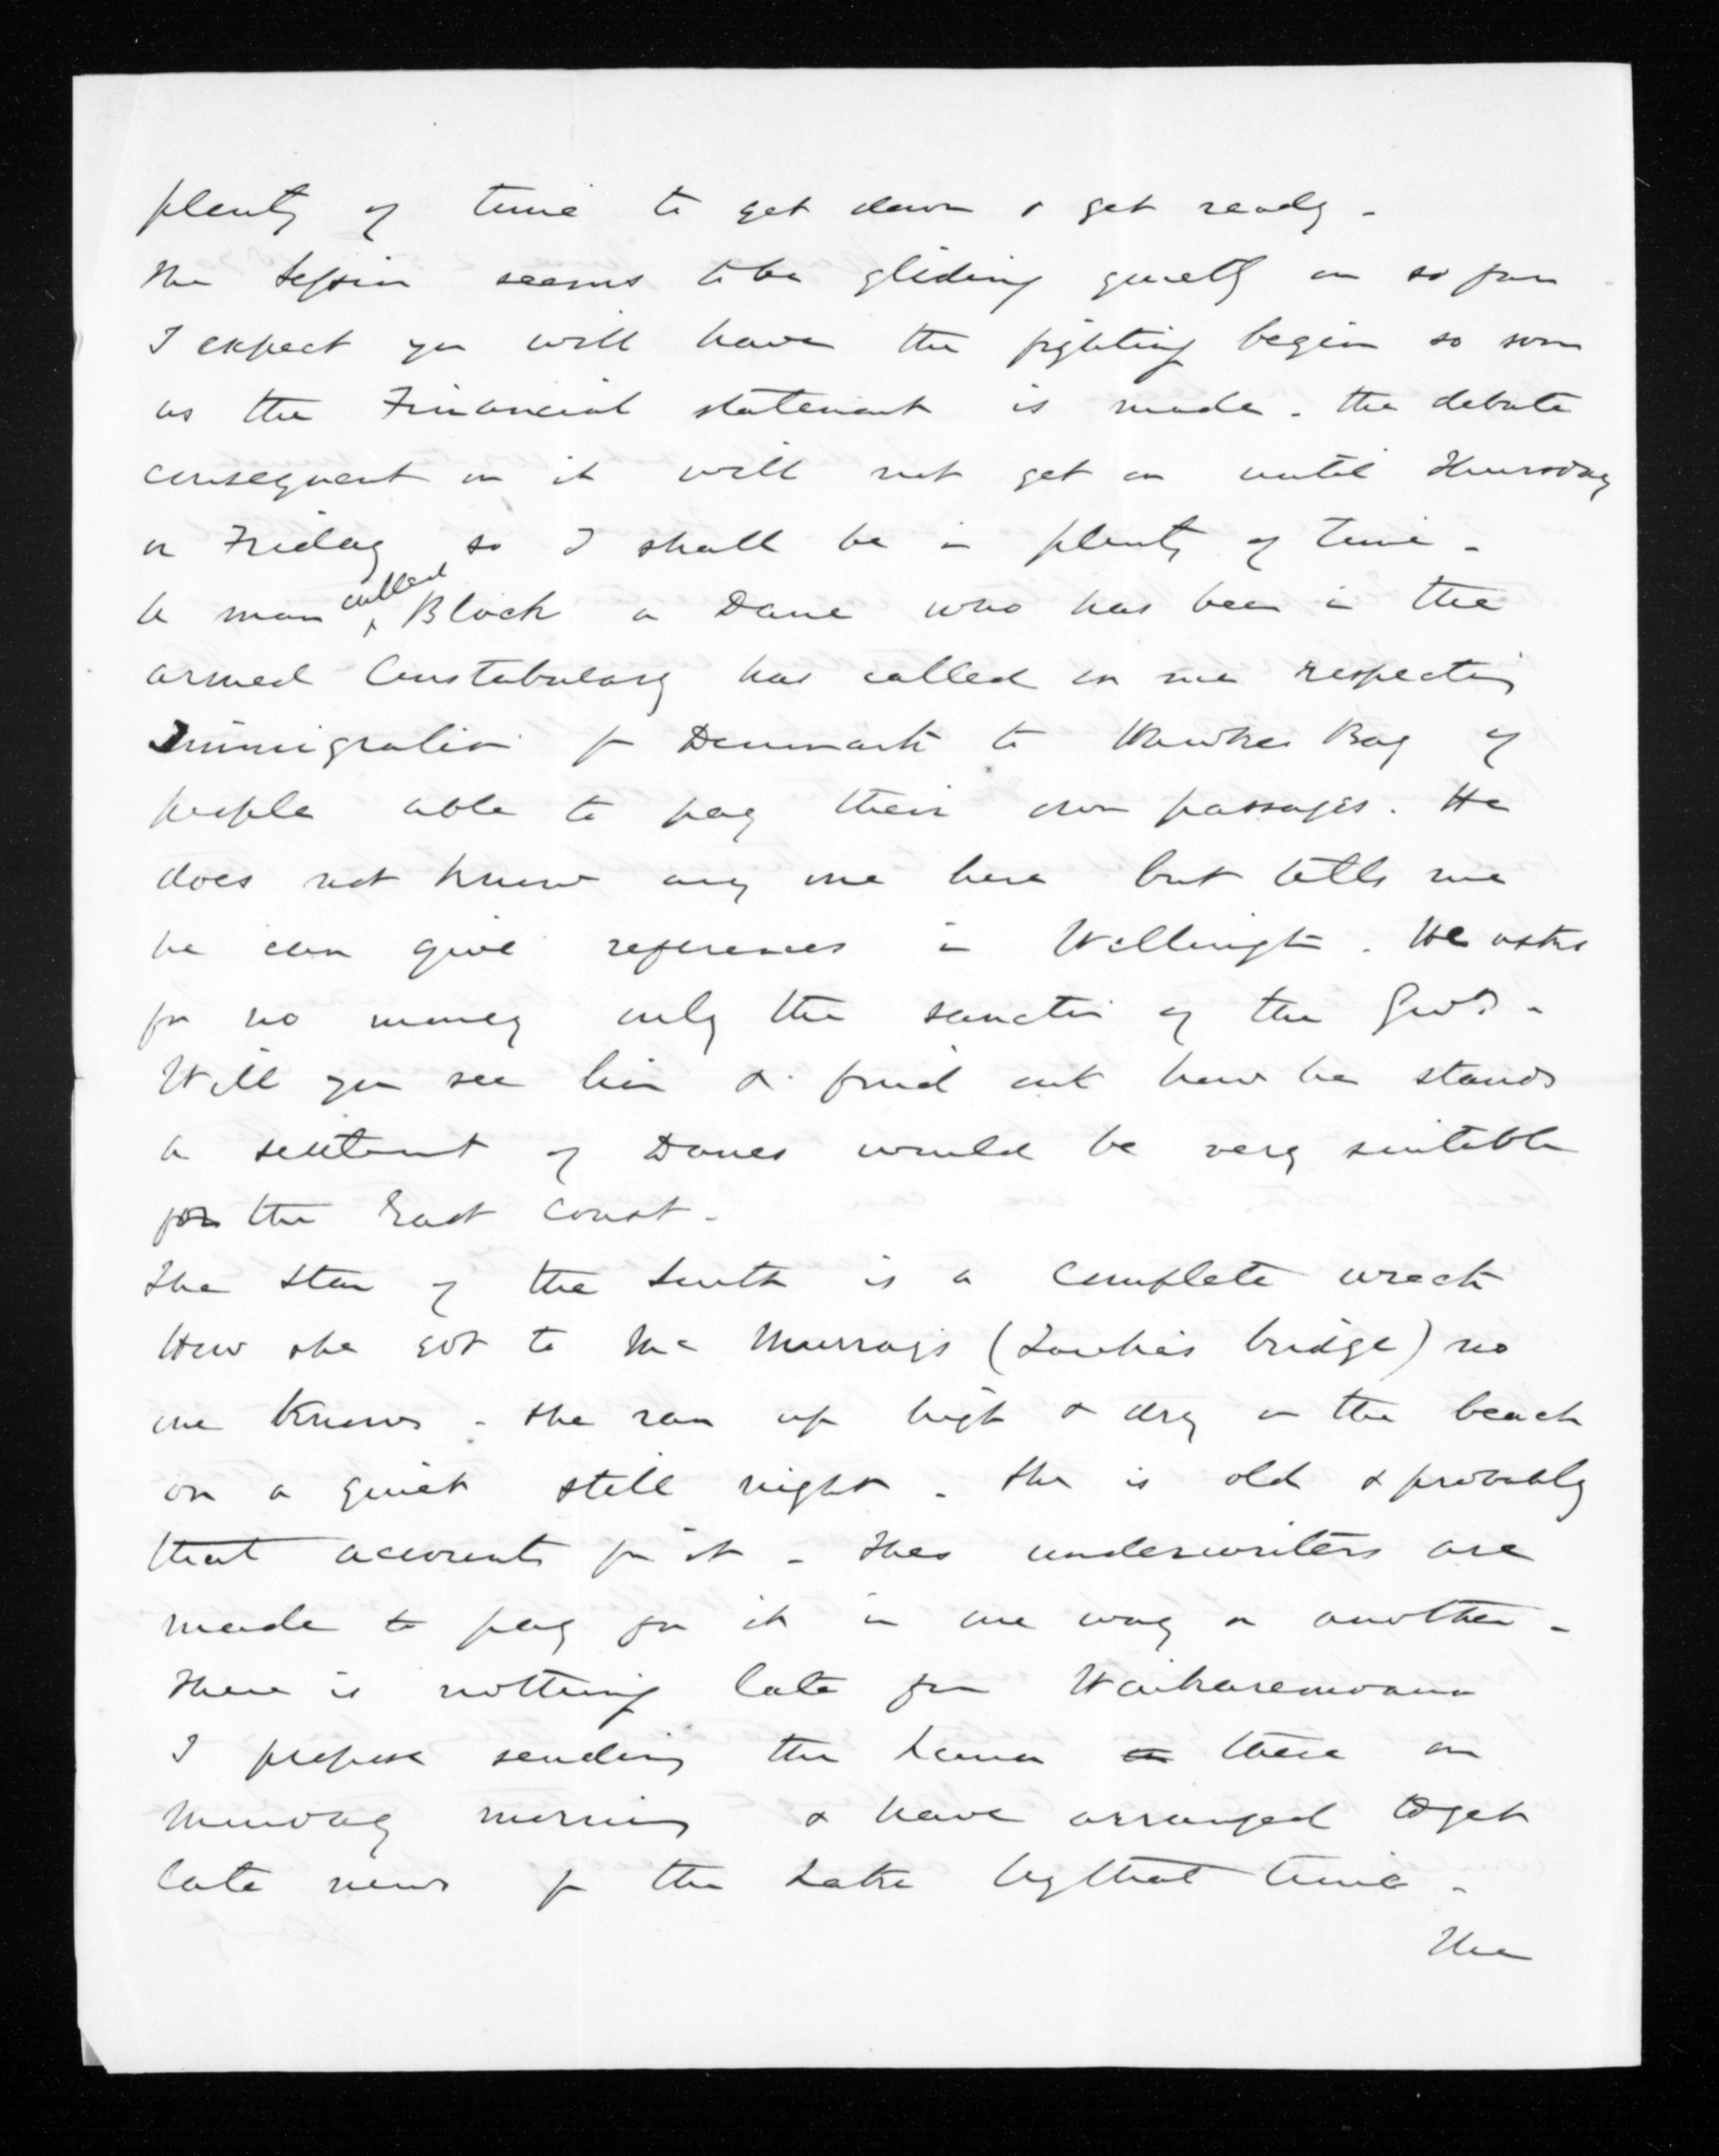 plenty of time to get down & get ready -
The Session seems to be gliding quietly on so far
I expect you will have the fighting begin so soon
as the Financial statement is made - the debate
consequent on it will not get on until Thursday
or Friday so I shall be in plenty of time -
A man called Block a Dane who has been in the
armed Constabulary has called on me respecting
Immigration fr Denmark to Hawkes Bay of
people able to pay their own passages. He
does not know any one here but tells me
he can give references in Wellington. He asks
for no money only the sanction of the Govt. -
Will you see him & find out how he stands
a settlement of Danes would be very suitable
for the East Coast -
The Star of the South is a complete wreck
How she got to Mc Murrays ( bridge) no
one knows - she ran up high & dry on the beach
on a quiet still night - She is old & probably
that accounts for it - The underwriters are
made to pay for it in one way or another -
There is nothing late from Waikaremoana
I propose sending the Luna there on
Monday morning & have arranged to get
late news fr the Lake by that time -
The